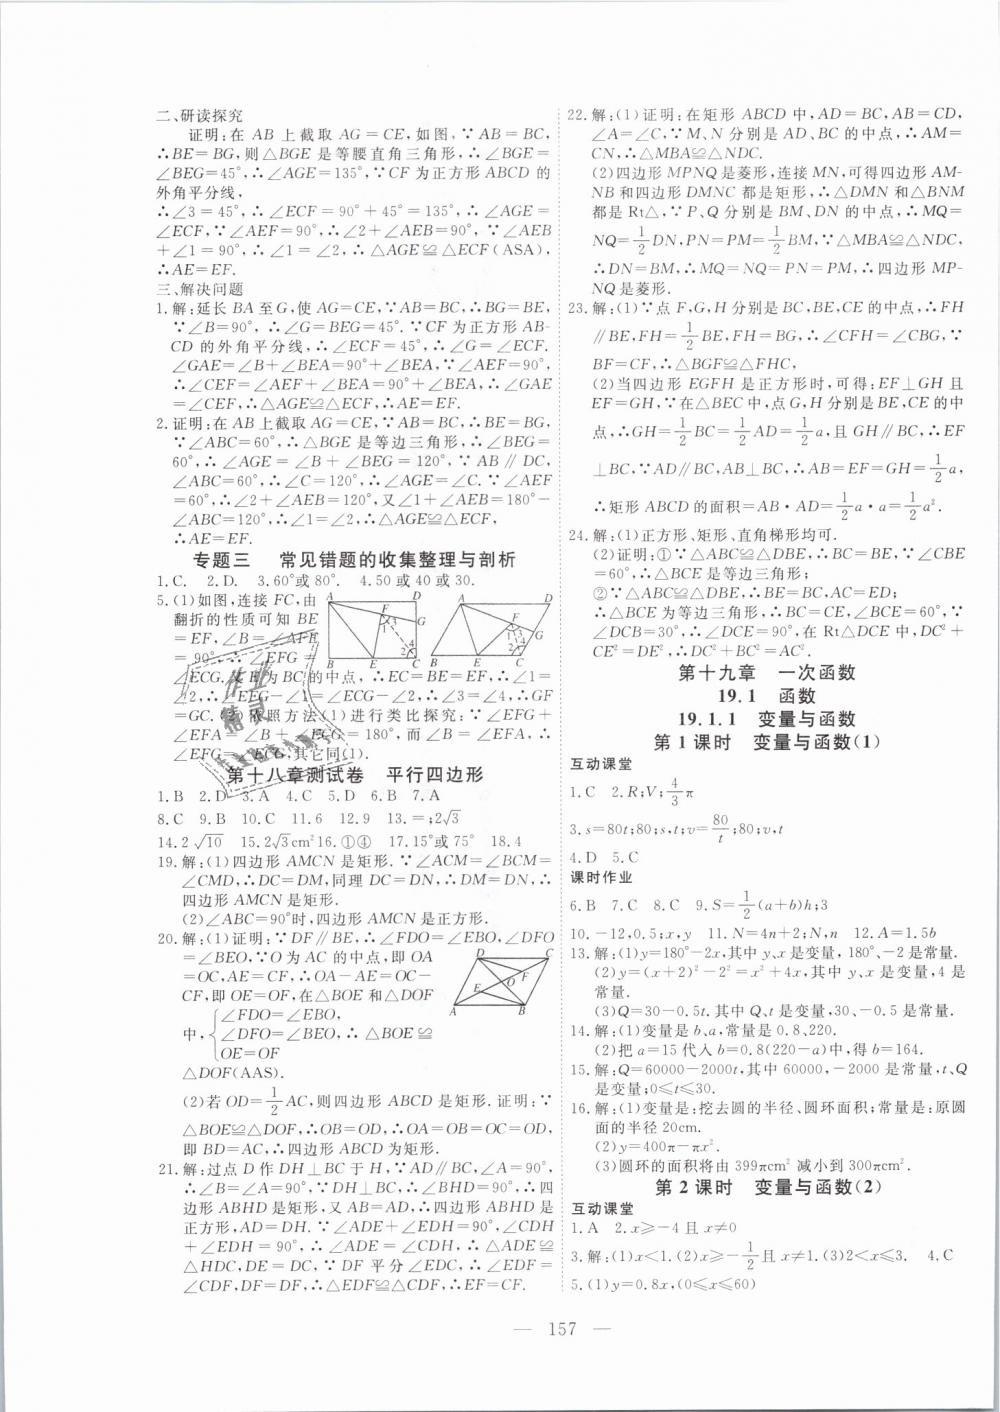 二、研读探究
证明:在 AB 上截取 AG=CE,如图,∵AB=BC,
∴BE=BG,则△BGE 是等腰直角三角形,∴∠BGE=
∠BEG=45°,∴∠AGE=135°,∵CF 为正方形 ABCD 的
外角平分线,
∴∠3=45°,∴∠ECF=90°+45°=135°,∴∠AGE=
∠ECF,∵∠AEF=90°,∴∠2+∠AEB=90°,∵∠AEB
+∠1=90°,∴∠1=∠2,∴△AGE≌△ECF(ASA),
∴AE=EF.
三、解决问题
1.解:延长 BA 至 G,使 AG=CE,∵AB=BC,∴BG=BE,
∵∠B=90°,∴∠G=BEG=45°.∵CF 为正方形 AB-
CD 的外角平分线,∴∠ECF=45°,∴∠G=∠ECF.
∠GAE=∠B+∠BEA=90°+∠BEA,∵∠AEF=90°,
∴∠CEF=∠AEF+∠BEA=90°+∠BEA,∴∠GAE
=∠CEF,∴△AGE≌△ECF,∴AE=EF.
2.证明:在 AB 上截取 AG=CE,∵AB=BC,∴BE=BG,
∵∠ABC=60°,∴△BGE 是等边三角形,∴∠BEG=
60°,∴∠AGE=∠B+∠BEG=120°,∵AB∥DC,
∠ABC=60°,∴∠C=120°,∴∠AGE=∠C.∵∠AEF
=60°,∴∠2+∠AEB=120°,又∠1+∠AEB=180°-
∠ABC=120°,∴∠1=∠2,∴△AGE≌△ECF,
∴AE=EF.
专题三 常见错题的收集整理与剖析
1.C. 2.D. 3.60°或 80°. 4.50 或 40 或 30.
5.(1)如图,连接 FC,由
翻折的性质可知 BE
=EF,∠B=∠AFE
=90°,∴∠EFG=
∠ECG.又 E 为 BC 的中点,∴EC=BE=EF,∴∠1=
∠2,∴∠EFG-∠1=∠ECG-∠2,∴∠3=∠4,∴GF
=GC.(2)依照方法(1)进行类比探究:∵∠EFG+
∠EFA=∠B+∠ECG=180°,而∠B=∠EFA,
∴∠EFG=∠ECG,其它同(1).
第十八章测试卷 平行四边形
1.B 2.D 3.A 4.C 5.D 6.B 7.A
8.C 9.B 10.C 11.6 12.9 13.=;2√3
14.2√10 15.2√3cm² 16.①④ 17.15°或 75° 18.4
19.解:(1)四边形 AMCN 是矩形.∵∠ACM=∠BCM=
∠CMD,∴DC=DM,同理 DC=DN,∴DM=DN,∴
四边形 AMCN 是矩形.
(2)∠ABC=90°时,四边形 AMCN 是正方形.
20.解:(1)证明:∵DF∥BE,∴∠FDO=∠EBO,∠DFO
=∠BEO,∵O 为 AC 的中点,即 OA
=OC,AE=CF,∴OA-AE=OC-
CF,即 OE=OF,在△BOE 和△DOF
中,{∠FDO=∠EBO,
∠DFO=∠BEO,∴△BOE≌
OE=OF
△DOF(AAS).
(2)若 OD=1/2AC,则四边形 ABCD 是矩形.证明:∵
△BOE≌△DOF,∴OB=OD,∴OA=OB=OC=OD,
即 BD=AC,∴四边形 ABCD 为矩形.
21.解:过点 D 作 DH⊥BC 于 H,∵AD∥BC,∠A=90°,
∴∠B=∠A=90°,∵DH⊥BC,∴∠BHD=90°,∴四
边形 ABHD 是矩形,又 AB=AD,∴四边形 ABHD 是
正方形,AD=DH.∵∠ADE+∠EDH=90°,∠CDH
+∠EDH=90°,∴∠ADE=∠CDH,∴△ADE≌
△HDC,DE=DC,∵DF 平分∠EDC,∴∠EDF=
∠CDF,DF=DF,∴△EDF≌△CDF,∴EF=CF.
22.解:(1)证明:在矩形 ABCD 中,AD=BC,AB=CD,
∠A=∠C,∵M、N 分别是 AD、BC 的中点,∴AM=
CN,∴△MBA≌△NDC.
(2)四边形 MPNQ 是菱形,连接 MN,可得四边形 AM-
NB 和四边形 DMNC 都是矩形,∴△DMN 和△BNM
都是 Rt△,∵P、Q 分别是 BM、DN 的中点,∴MQ=
NQ=1/2DN,PN=PM=1/2BM,∵△MBA≌△NDC,
∴DN=BM,∴MQ=NQ=PN=PM,∴四边形 MP-
NQ 是菱形.
23.解:(1)∵点 F,G,H 分别是 BC,BE,CE 的中点,∴FH
∥BE,FH=1/2BE,FH=BG,∴∠CFH=∠CBG,∵
BF=CF,∴△BGF≌△FHC,
(2)当四边形 EGFH 是正方形时,可得:EF⊥GH 且
EF=GH,∵在△BEC 中,点 G,H 分别是 BE,CE 的中
点,∴GH=1/2BC=1/2AD=1/2a,且 GH∥BC,∴EF
⊥BC,∵AD∥BC,AB⊥BC,∴AB=EF=GH=1/2a,
∴矩形 ABCD 的面积=AB·AD=1/2a·a=1/2a².
24.解:(1)正方形、矩形、直角梯形均可.
(2)证明:①∵△ABC≌△DBE,∴BC=BE,∵∠CBE
=60°,∴△BCE 是等边三角形;
②∵△ABC≌△DBE,∴BE=BC,AC=ED;
∴△BCE 为等边三角形,∴BC=CE,∠BCE=60°,∵
∠DCB=30°,∴∠DCE=90°,在 Rt△DCE 中,DC²+
CE²=DE²,∴DC²+BC²=AC².
第十九章 一次函数
19.1 函数
19.1.1 变量与函数
第 1 课时 变量与函数(1)
互动课堂
1.C 2.R;V;4/3π
3.s=80t;80;s,t;v=80/t;80;v,t
4.D 5.C
课时作业
6.B 7.C 8.C 9.S=1/2(a+b)h;3
10.-12,0.5;x,y 11.N=4n+2;N,n 12.A=1.5b
13.解:(1)y=180°-2x,其中 y、x 是变量,180°、-2 是常量.
(2)y=(x+2)²-2²=x²+4x,其中 y、x 是变量,4 是
常量.
(3)Q=30-0.5t.其中 Q、t 是变量,30、-0.5 是常量.
14.解:(1)变量是 b、a,常量是 0.8、220.
(2)把 a=15 代入 b=0.8(220-a)中,得 b=164.
15.解:Q=60000-2000t,其中 60000,-2000 是常量,t、Q
是变量;0≤t≤30.
16.解:(1)变量是:挖去圆的半径、圆环面积;常量是:原圆
面的半径 20cm.
(2)y=400π-πx².
(3)圆环的面积将由 399πcm² 减小到 300πcm².
第 2 课时 变量与函数(2)
互动课堂
1.A 2.x≥-4 且 x≠0
3.解:(1)x<1.(2)x≥-1/2且 x≠1.(3)2<x≤3. 4.C
5.(1)y=0.8x,(0≤x≤60)
— 157 —